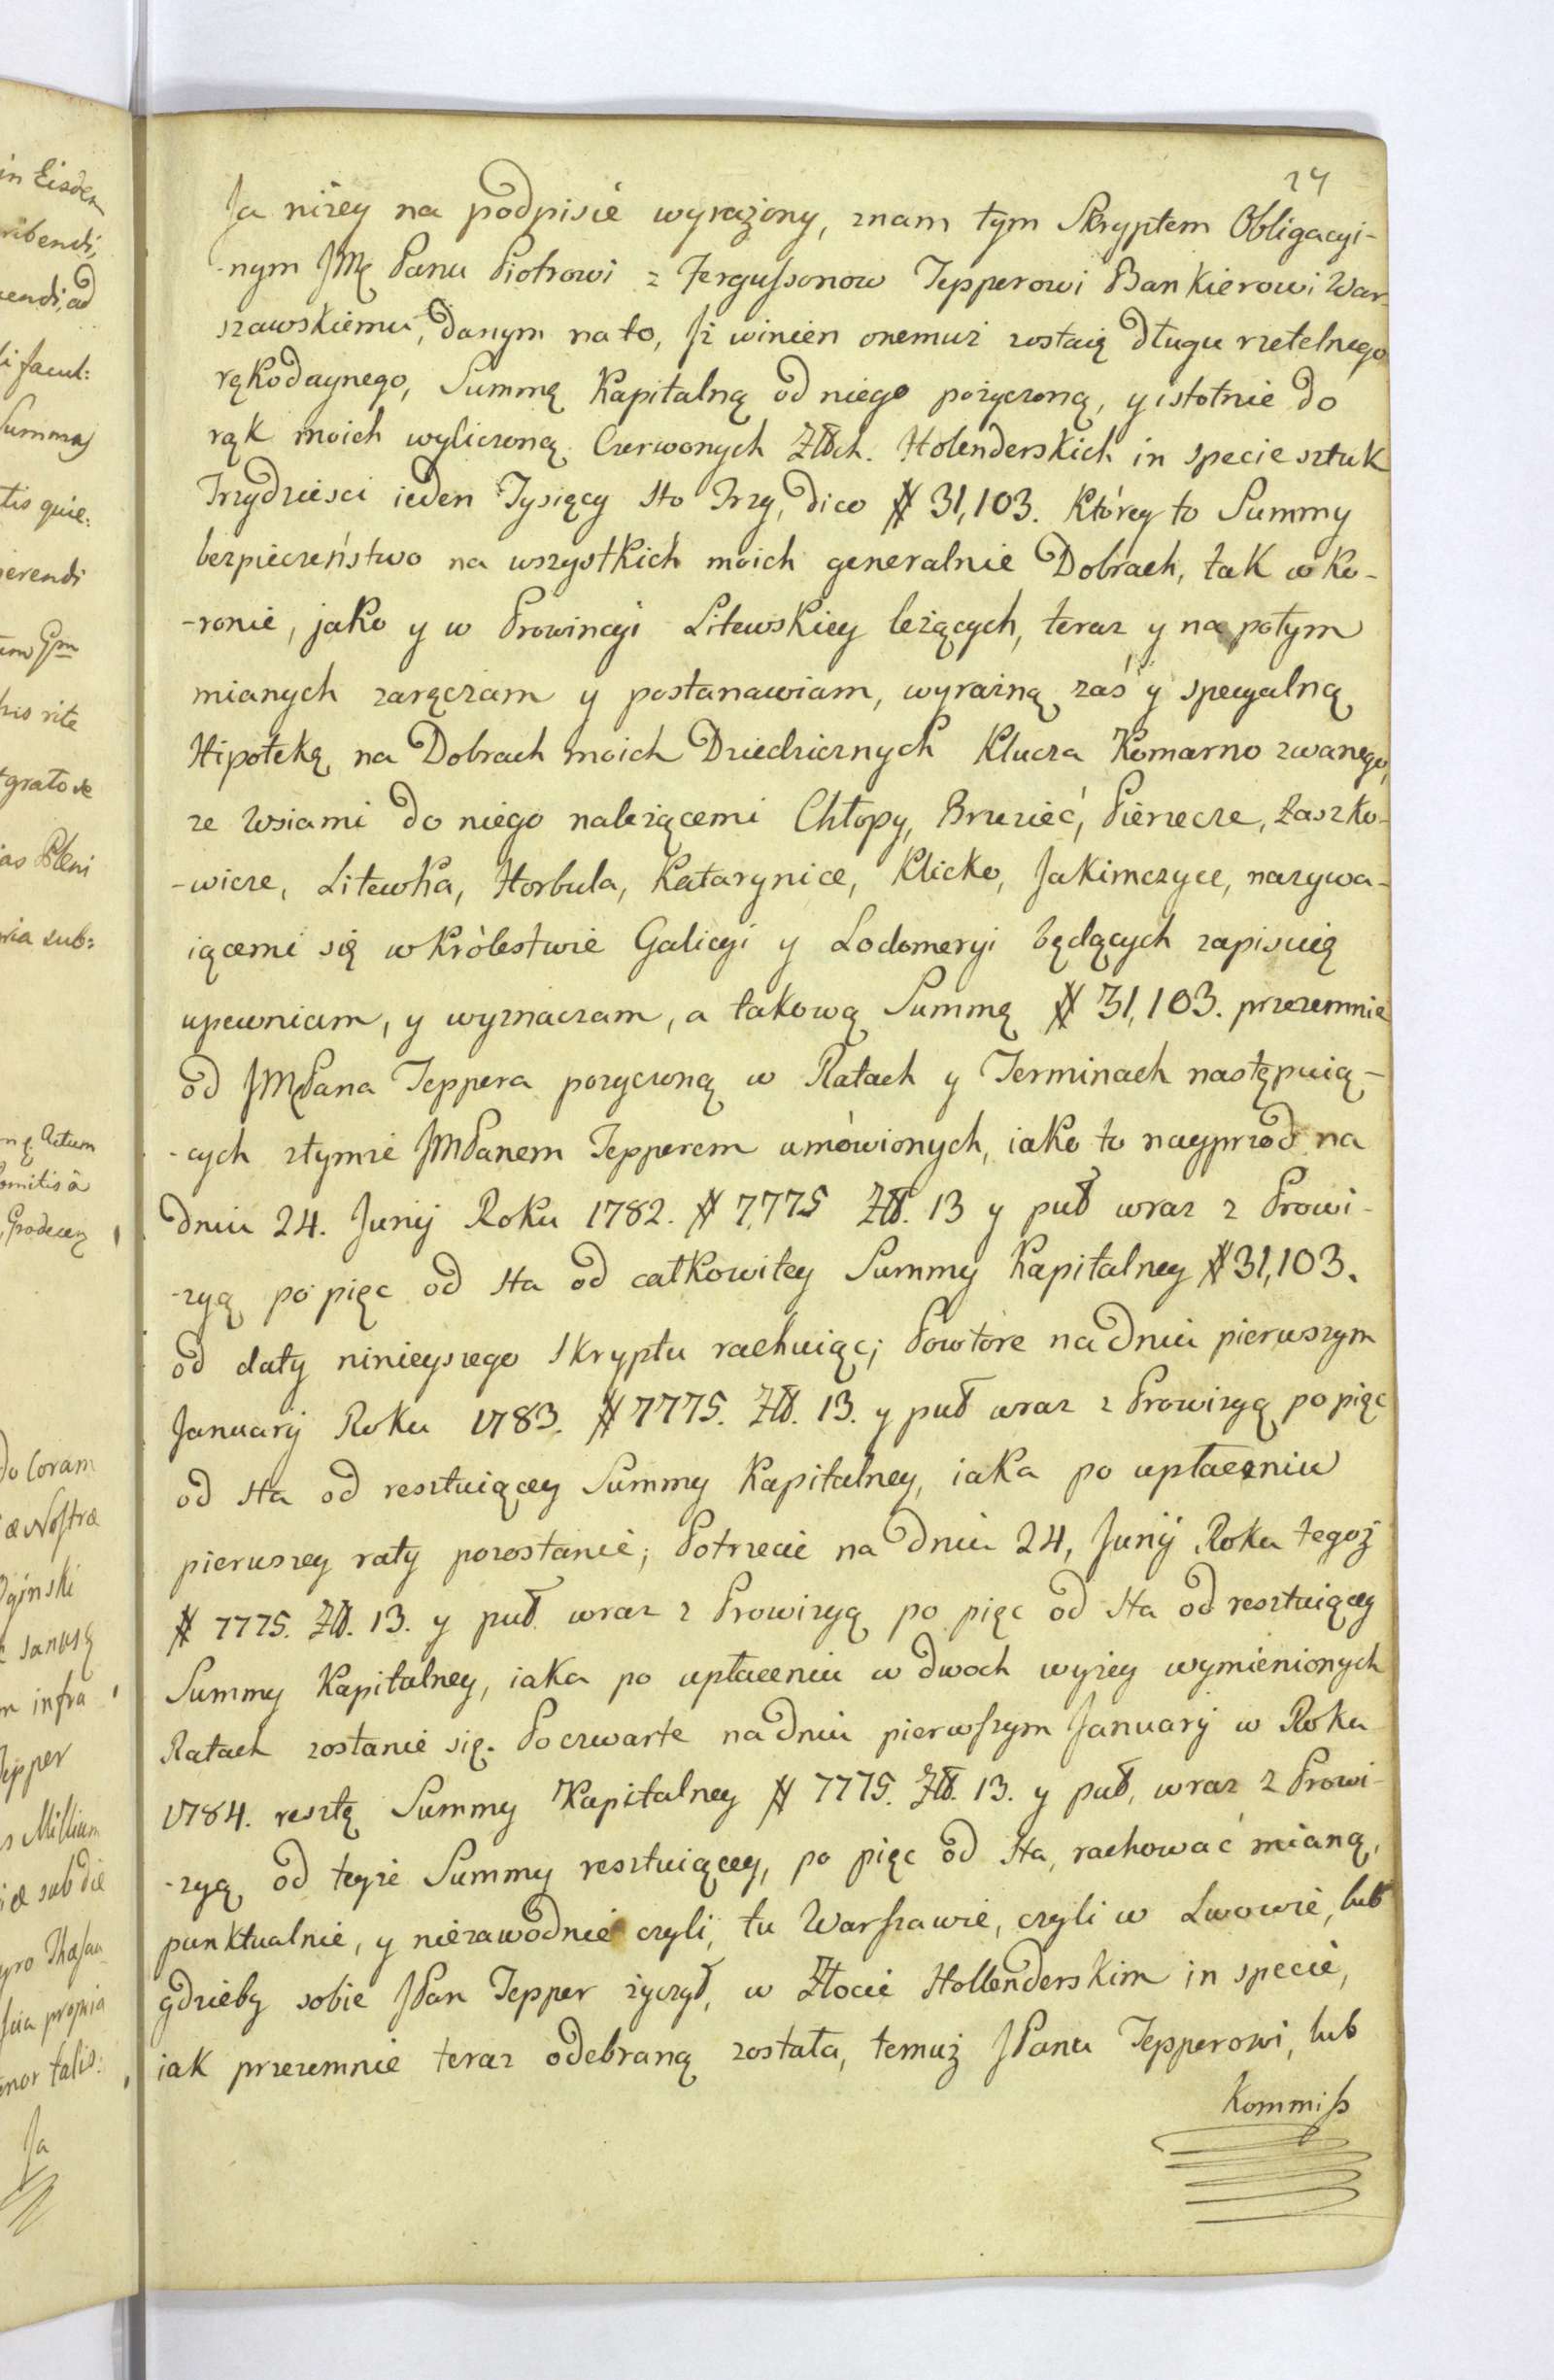 24
Ja niżey na podpisie wyrażony, znam tym Skryptem Obligacyi-
-nym JMć Panu Piotrowi z Fergussonow Tepperowi Bankierowi War-
szawskiemu, danym na to, Jż winien onemuż zostaię długu rzetelnego
rękodaynego, Summę Kapitalną od niego pożyczoną, y istotnie do
rąk moich wyliczoną Czerwonych Złłch. Holenderskich in specie sztuk
Trzydziesci ieden Tysięcy sto Trzy, dico # 31,103. Którey to Summy
bezpieczeństwo na wszystkich moich generalnie Dobrach, tak w Ko-
-ronie, jako y w Prowincyi Litewskiey leżących, teraz y na potym
mianych zaręczam y postanawiam, wyraźną zaś y specyalną
Hipotekę na Dobrach moich Dziedzicznych Klucza Komarno zwanego,
ze Wsiami do niego należącemi Chłopy, Brzezieć, Pierzecze, Łaszko-
-wicze, Litewka, Horbula, Katarynice, Klicko, Jakimczyce, nazywa-
iącemi się w Królestwie Galicyi y Lodomeryi będących zapisuię
upewniam, y wyznaczam, a takową Summę # 31,103. przezemnie
od JMć Pana Teppera pozyczoną w Ratach y Terminach następuią-
-cych ztymże JMPanem Tepperem umówionych, iako to nayprzod na
dniu 24. Junij Roku 1782. # 7,775 Złł. 13 y puł wraz z Prowi-
-zyą po pięc od sta od całkowitey Summy Kapitalney # 31,103.
od daty ninieyszego Skryptu rachuiąc; Powtore na dniu pierwszym
Januarij Roku 1783. # 7775. Złł. 13. y puł wraz z Prowizyą po pięc
od sta od resztuiącey Summy Kapitalney, iaka po upłaceniu
pierwszey raty pozostanie; Potrzecie na dniu 24, Junij Roku tegoż
# 7775. Złł. 13. y puł wraz z Prowizyą po pięc od sta od resztuiącey
Summy Kapitalney, iaka po upłaceniu w dwoch wyżey wymienionych
Ratach zostanie się. Poczwarte na dniu pierwszym Januarij w Roku
1784. resztę Summy Kapitalney # 7775. Złł. 13. y puł, wraz z Prowi-
-zyą od teyże Summy resztuiącey, po pięc od sta, rachować mianą,
punktualnie, y niezawodnie czyli, tu Warszawie, czyli w Lwowie, lub
gdzieby sobie JPan Tepper życzył, w Złocie Hollenderskim in specie,
iak przezemnie teraz odebraną została, temuż JPanu Tepperowi, lub
Kommiss